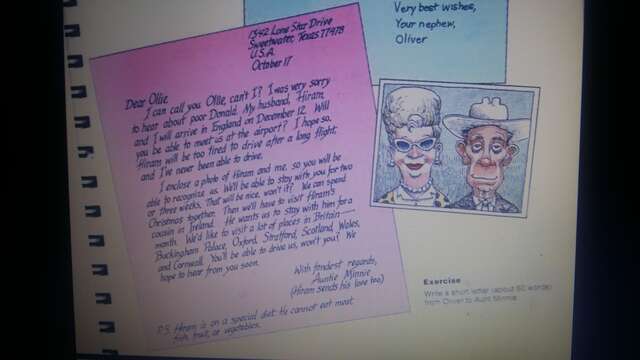 Very best wishes,
Your nephew,
Oliver
1342 Lone Star Drive
Sweetwater, Texas 77478
U.S.A.
October 17
Dear Ollie,
I can call you Ollie, can't I? I was very sorry
to hear about poor Donald. My husband, Hiram,
and I will arrive in England on December 12. Will
you be able to meet us at the airport? I hope so.
Hiram will be too tired to drive after a long flight,
and I've never been able to drive.
I enclose a photo of Hiram and me, so you will be
able to recognize us. We'll be able to stay with you for two
or three weeks. That will be nice, won't it? We can spend
Christmas together. Then we'll have to visit Hiram's
cousin in Ireland. He wants us to stay with him for a
month. We'd like to visit a lot of places in Britain—
Buckingham Palace, Oxford, Stratford, Scotland, Wales,
and Cornwall. You'll be able to drive us, won't you? We
hope to hear from you soon.
With fondest regards,
Auntie Minnie
(Hiram sends his love too)
P.S. Hiram is on a special diet. He cannot eat meat,
fish, fruit, or vegetables.
Exercise
Write a short letter (about 60 words)
from Oliver to Aunt Minnie.